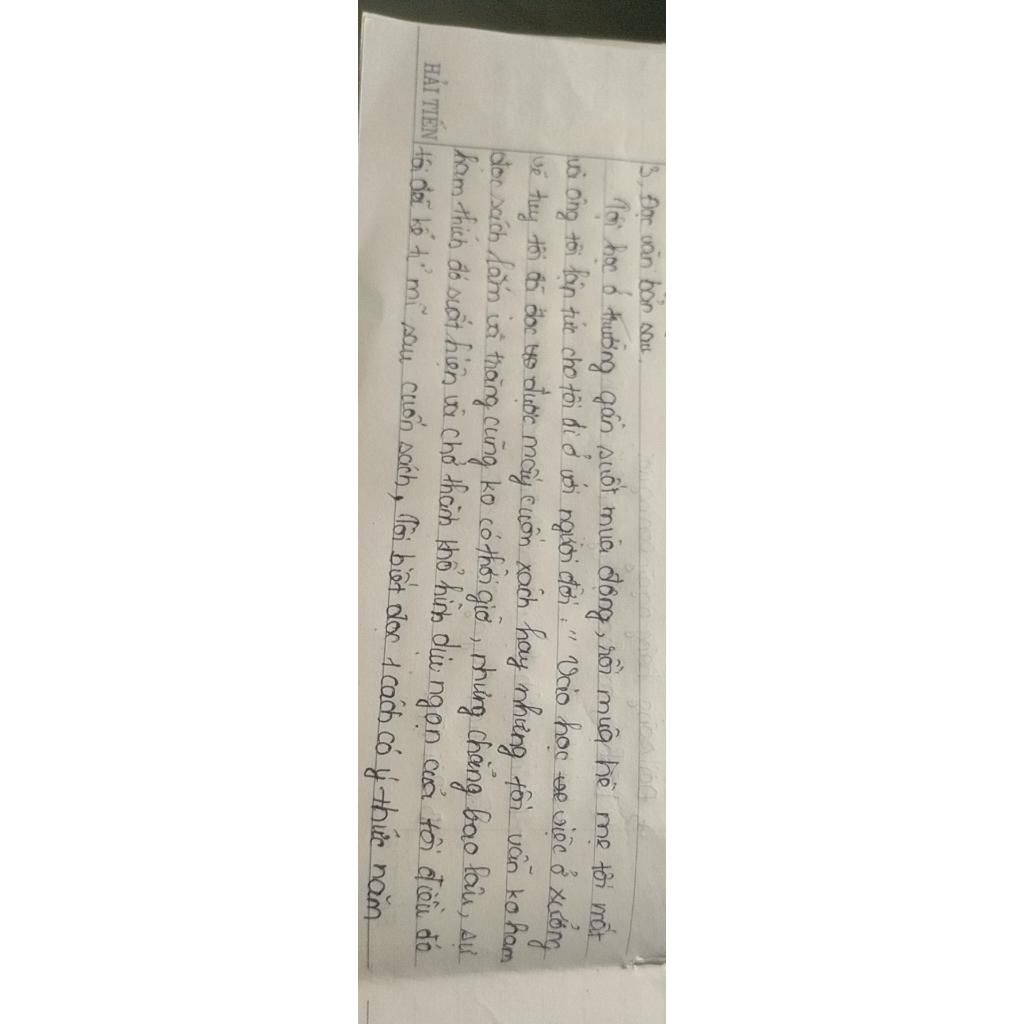 3, Đọc văn bản sau.
Tôi học ở trường gần suốt mùa đông, rồi mùa hè mẹ tôi mất
và ông tôi lập tức cho tôi đi ở với người đời. " Vào học việc ở xưởng
vẽ tuy tôi đã đọc được mấy cuốn xách hay nhưng tôi vẫn ko ham
đọc sách lắm và thăng cũng ko có thời giờ, nhưng chẳng bao lâu, sự
ham thích đó suất hiện và chở thành khổ hình dịu ngọn của tôi điều đó
tôi đã kể tỉ mĩ sau cuốn sách, Tôi biết đọc 1 cách có ý thức năm
HẢI TIẾN